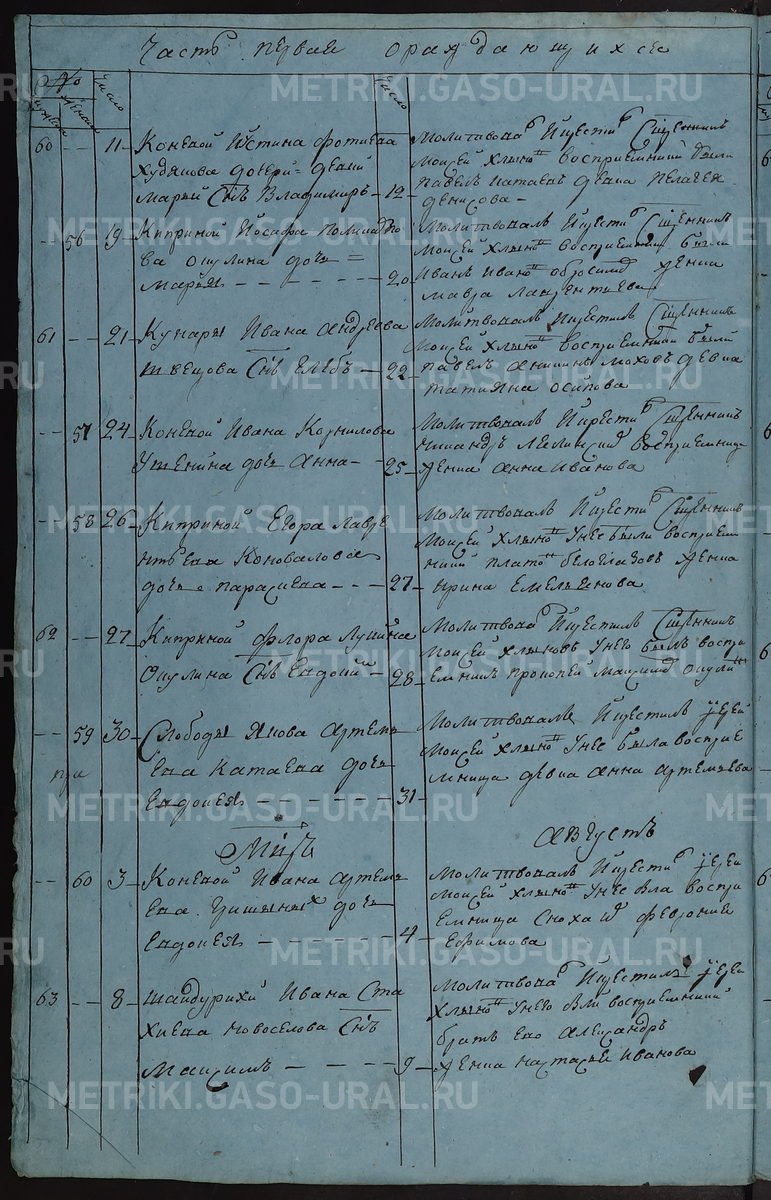 Часть первая о раждающихся
№
Мужеска
Женска
Число
Число
60 -- 11 Коневой Иустина Фотиева
Худякова дочери девки
Марьи Снъ Владимиръ - 12
Молитвова Икрестиъ Сщенникъ
Моисей Хлыновъ восприемники были
Павелъ Катаевъ девка Пелагея
Денисова -
-- 56 19 Киприной Иосафа Поликарпо
ва Окулина дочь =
Марья - - - - - - 20
Молитвовалъ Икрестиъ Сщенникъ
Моисей Хлыновъ восприемники были
Иванъ Иванов Абросимов женка
Мавра Лаврентиева
61 -- 21 Кунары Ивана Андреева
Швецова Снъ Глебъ - 22
Молитвовалъ Икрестилъ Сщенникъ
Моисей Хлыновъ восприемники были
Павелъ Аникинъ Моховъ девка
Татияна Осипова
-- 57 24 Коневой Ивана Корнилова
Утенина дочь Анна - 25
Молитвовалъ Икрестиъ Сщенникъ
восприемница
женка Анна Иванова
-- 58 26 Киприной Егора Лавре
нтьева Коновалова
дочь Параскева - - - 27
Молитвовалъ Икрестиъ Сщенникъ
Моисей Хлыновъ Унее были восприем
ники Платонъ Белоглазовъ женка
Ирина Емельянова
62 -- 27 Киприной Флора Лукина
Окулина Снъ Евдоким - 28
Молитвова Икрестилъ Сщенникъ
Моисей Хлыновъ Унего былъ воспри
емникъ Прокопей Максимов Окулинъ
-- 59 30 Слободы Якова Артемь
при
ева Катаева дочь
Евдокея - - - - - - 31
Молитвовалъ Икрестилъ Iерей
Моисей Хлыновъ Унее была восприе
мница девка Анна Артемьева
Мцъ Августъ
-- 60 3 Коневой Ивана Артемь
ева Гришиных дочь
Евдокея - - - - - - 4
Молитвовалъ Икрестиъ Iерей
Моисей Хлыновъ Унее бла воспри
емница Сноха И Феврония
Ефимова
63 -- 8 Шайдурихи Ивана Ста
хиева Новоселова Снъ
Максимъ - - - - - 9
Молитвова Икрестилъ Iерей
Хлыновъ Унего бли восприемники
братъ ево Александръ
женка Настасья Иванова
METRIKI.GASO-URAL.RU